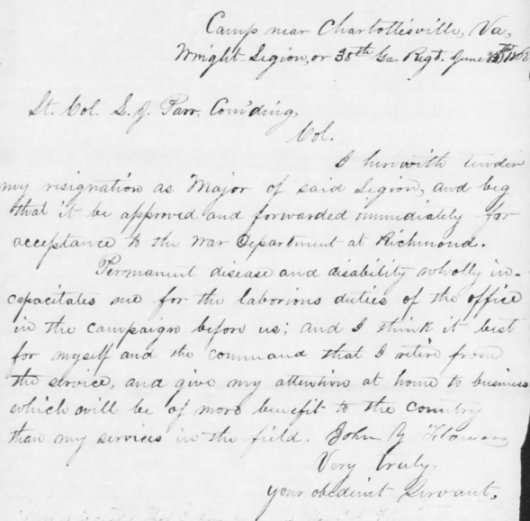 Camp near Charlottesville, Va,
Wright Legion, or 38th Ga. Regt. June
Lt. Col. L. J. Parr, Com'ding,
Col.
I herewith tender
my resignation as Major of said Legion, and beg
that it be approved and forwarded immediately for
acceptance to the War Department at Richmond.
Permanent disease and disability wholly in-
capacitates me for the laborious duties of the office
in the campaign before us; and I think it best
for myself and the command that I retire from
the service, and give my attention at home to business
which will be of more benefit to the country
than my services in the field. John Y Flowers
Very truly,
your obedient Servant,